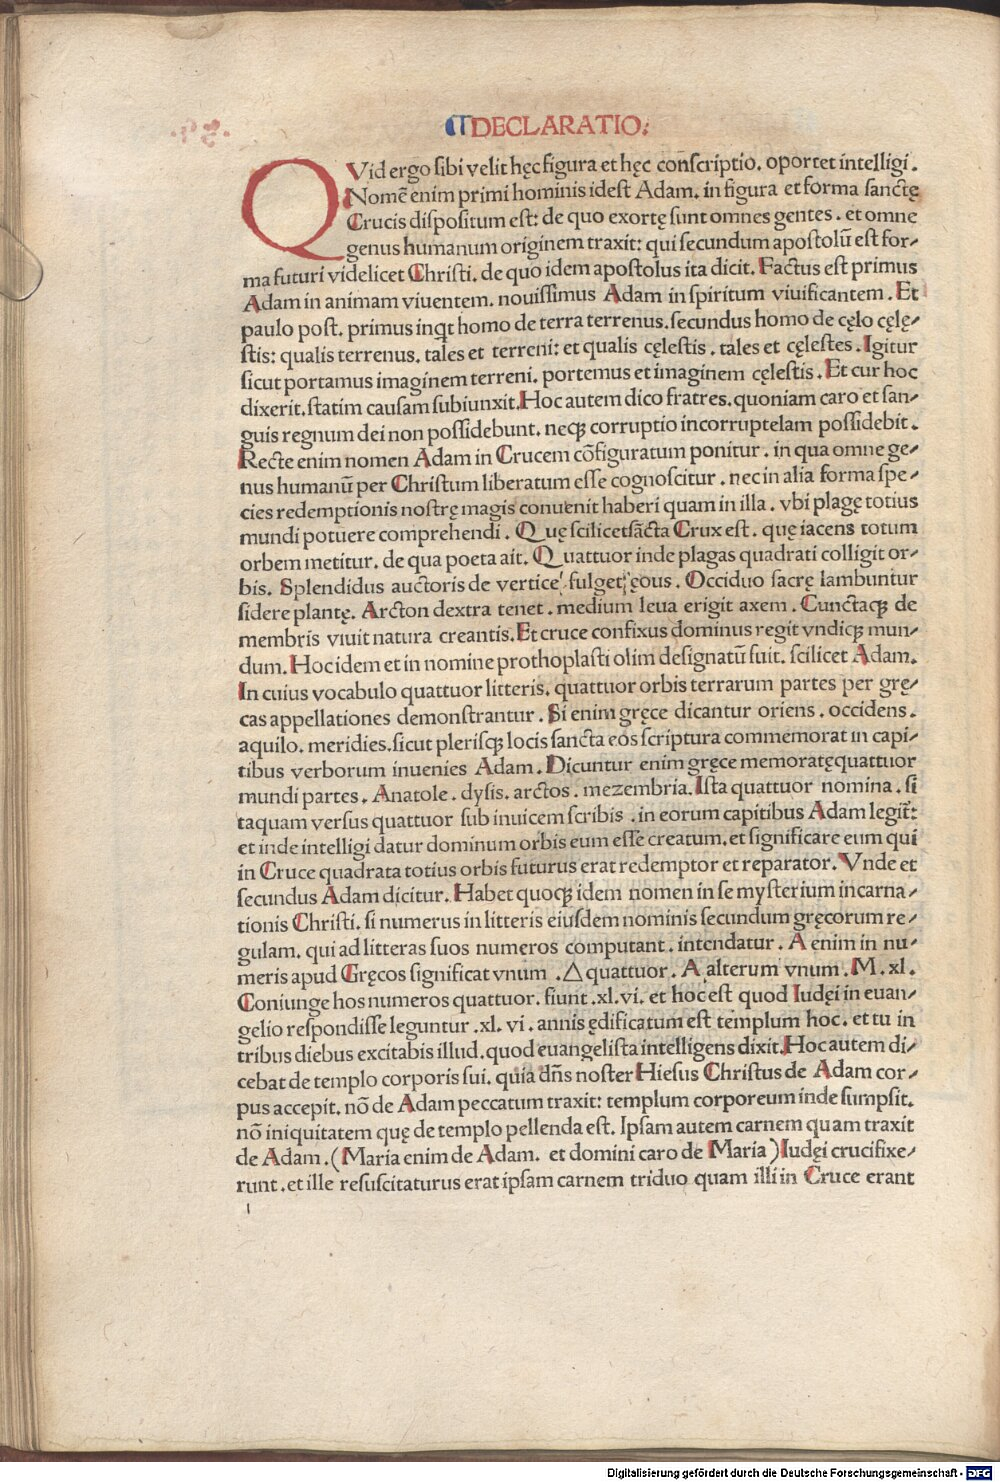 DECLARATIO:
QVid ergo ſibi velit hęc figura et hęc conſcriptio. oportet intelligi.
Nomē enim primi hominis ideſt Adam. in figura et forma ſanctę
Crucis diſpoſitum eſt: de quo exortę ſunt omnes gentes. et omne
genus humanum originem traxit: qui ſecundum apoſtolū eſt for⸗
ma futuri videlicet Chriſti. de quo idem apoſtolus ita dicit. Factus eſt primus
Adam in animam viuentem. nouiſſimus Adam in ſpiritum viuificantem. Et
paulo poſt. primus inqt homo de terra terrenus. ſecundus homo de cęlo cęlę⸗
ſtis: qualis terrenus. tales et terreni: et qualis cęleſtis. tales et cęleſtes. Igitur
ſicut portamus imaginem terreni. portemus et imaginem cęleſtis. Et cur hoc
dixerit. ſtatim cauſam ſubiunxit. Hoc autem dico fratres. quoniam caro et ſan⸗
guis regnum dei non poſſidebunt. neqꝫ corruptio incorruptelam poſſidebit.
Recte enim nomen Adam in Crucem cōfiguratum ponitur. in qua omne ge⸗
nus humanū per Chriſtum liberatum eſſe cognoſcitur. nec in alia forma ſpe⸗
cies redemptionis noſtrę magis conuenit haberi quam in illa. vbi plagę totius
mundi potuere comprehendi. Quę ſcilicet ſācta Crux eſt. quę iacens totum
orbem metitur. de qua poeta ait. Quattuor inde plagas quadrati colligit or⸗
bis. Splendidus auctoris de vertice fulget ęous. Occiduo ſacrę lambuntur
ſidere plantę. Arcton dextra tenet. medium leua erigit axem. Cunctaqꝫ de
membris viuit natura creantis. Et cruce confixus dominus regit vndiqꝫ mun⸗
dum. Hoc idem et in nomine prothoplaſti olim deſignatū fuit. ſcilicet Adam.
In cuius vocabulo quattuor litteris. quattuor orbis terrarum partes per grę⸗
cas appellationes demonſtrantur. Si enim gręce dicantur oriens. occidens.
aquilo. meridies. ſicut pleriſqꝫ locis ſancta eos ſcriptura commemorat in capi⸗
tibus verborum inuenies Adam. Dicuntur enim gręce memoratę quattuor
mundi partes. Anatole. dyſis. arctos. mezembria. Iſta quattuor nomina. ſi
taquam verſus quattuor ſub inuicem ſcribis. in eorum capitibus Adam legit̄:
et inde intelligi datur dominum orbis eum eſſe creatum. et ſignificare eum qui
in Cruce quadrata totius orbis futurus erat redemptor et reparator. Vnde et
ſecundus Adam dicitur. Habet quoqꝫ idem nomen in ſe myſterium incarna⸗
tionis Chriſti. ſi numerus in litteris eiuſdem nominis ſecundum gręcorum re⸗
gulam. qui ad litteras ſuos numeros computant. intendatur. A enim in nu⸗
meris apud Gręcos ſignificat vnum. Δ quattuor. A alterum vnum. M. xl.
Coniunge hos numeros quattuor. fiunt .xl.vi. et hoc eſt quod Iudęi in euan⸗
gelio reſpondiſſe leguntur .xl. vi. annis ędificatum eſt templum hoc. et tu in
tribus diebus excitabis illud. quod euangeliſta intelligens dixit. Hoc autem di⸗
cebat de templo corporis ſui. quia dn̄s noſter Hieſus Chriſtus de Adam cor⸗
pus accepit. nō de Adam peccatum traxit: templum corporeum inde ſumpſit.
nō iniquitatem quę de templo pellenda eſt. Ipſam autem carnem quam traxit
de Adam. (Maria enim de Adam. et domini caro de Maria) Iudęi crucifixe⸗
runt. et ille reſuſcitaturus erat ipſam carnem triduo quam illi in Cruce erant
Digitalisierung gefördert durch die Deutsche Forschungsgemeinschaft - DFG